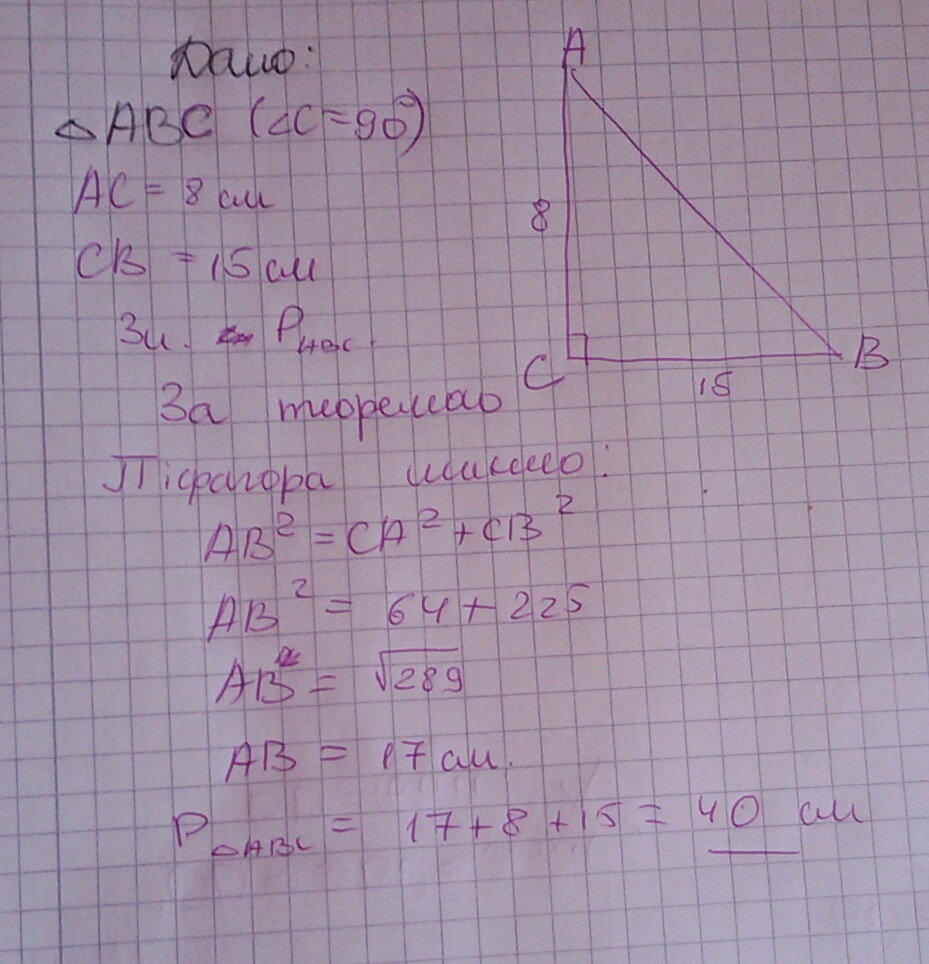 Дано:
△ABC (∠C=90°)
AC = 8 см
CB = 15 см
Зн. P△ABC.
За теоремою
Піфагора маємо:
AB² = CA² + CB²
AB² = 64 + 225
AB = √289
AB = 17 см.
P△ABC = 17+8+15 = 40 см
A
8
C
15
B